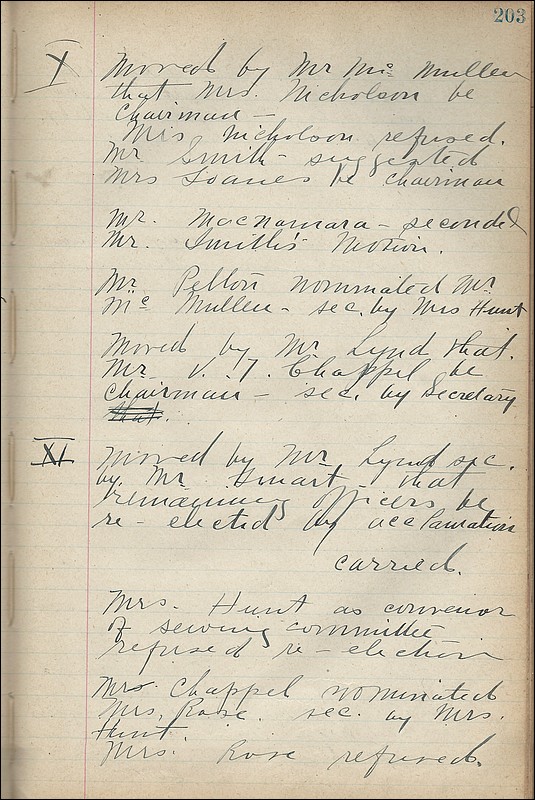 203
X Moved by Mr Mc Mullen
that Mrs. Nicholson be
Chairman –
Mrs Nicholson refused.
Mr Smith – suggested
Mrs Soanes be Chairman
Mr. Macnamara – seconded
Mr. Smith's Motion.
Mr Pelton nominated Mr.
Mc Mullen – sec. by Mrs Hunt
Moved by Mr. Lynd that.
Mr. V. T. Chappel be
Chairman – sec. by Secretary
that.
XI Moved by Mr. Lynd sec.
by Mr. Smart – that
remaining officers be
re-elected by acclamation
carried.
Mrs. Hunt as convenor
of sewing committee
refused re-election
Mrs Chappel nominated
Mrs. Rose. sec. by Mrs.
Hunt
Mrs. Rose refused.